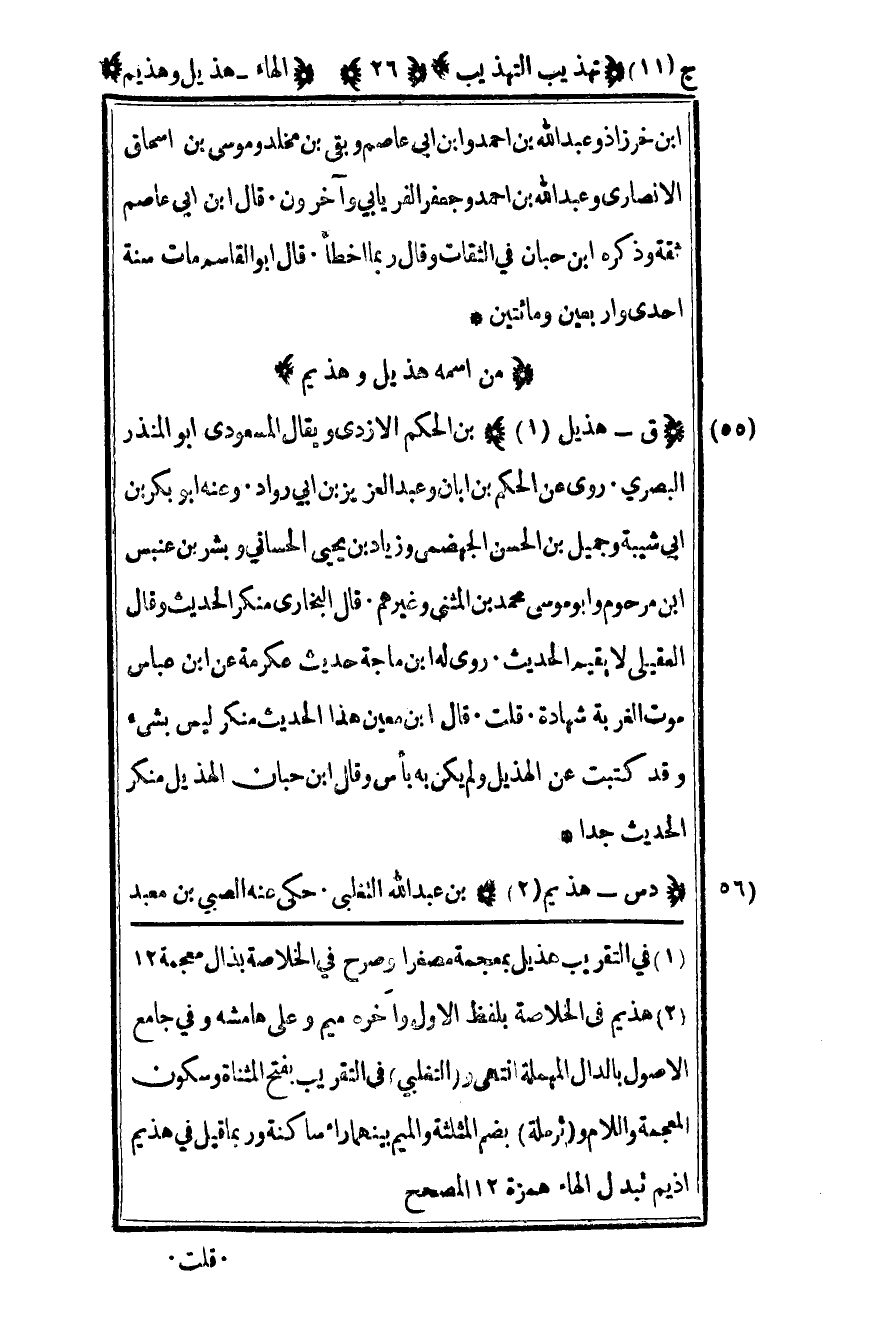 ج (١١) ﴿ تهذيب التهذيب ﴾ ﴿ ٢٦ ﴾ ﴿ الهاء ـ هذيل وهذيم ﴾
ابن خرزاذ وعبدالله بن احمد وابن ابي عاصم وبقي بن مخلد وموسى بن اسحاق
الانصارى وعبدالله بن احمد وجعفر الفريابي وآخرون ٠ قال ابن ابي عاصم
ثقة وذكره ابن حبان في الثقات وقال ربما اخطأ ٠ قال ابوالقاسم مات سنة
احدى واربعين ومائتين *
﴿ من اسمه هذيل وهذيم ﴾
(٥٥) ﴿ ق ـ هذيل (١) ﴾ بن الحكم الازدى ويقال المسعودى ابو المنذر
البصري ٠ روى عن الحكم بن ابان وعبدالعزيز بن ابي رواد ٠ وعنه ابو بكر بن
ابي شيبة وجميل بن الحسن الجهضمى وزياد بن يحيى الحساني وبشر بن عنبس
ابن مرحوم وابو موسى محمد بن المثنى وغيرهم ٠ قال البخارى منكر الحديث وقال
العقيلى لا يقيم الحديث ٠ روى له ابن ماجة حديث عكرمة عن ابن عباس
موت الغربة شهادة ٠ قلت ٠ قال ابن معين هذا الحديث منكر ليس بشىء
وقد كتبت عن الهذيل ولم يكن به بأس وقال ابن حبان الهذيل منكر
الحديث جدا *
(٥٦ ﴿ دس ـ هذيم (٢) ﴾ بن عبدالله التغلبى ٠ حكى عنه الصبي بن معبد
(١) في التقريب هذيل بمعجمة مصغرا وصرح في الخلاصة بذال معجمة ١٢
(٢) هذيم فى الخلاصة بلفظ الاول وآخره ميم وعلى هامشه وفي جامع
الاصول بالدال المهملة انتهى و(التغلبي) فى التقريب بفتح المثناة وسكون
المعجمة واللام و(ثرملة) بضم المثلثة والميم بينهما راء ساكنة وربما قيل في هذيم
اذيم تبدل الهاء همزة ١٢ المصحح
٠ قلت ٠